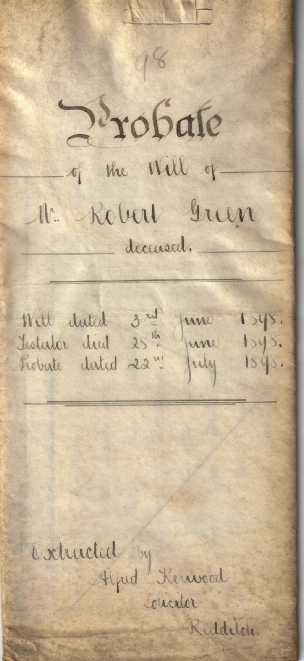 98
Probate
of the Will of
Mr. Robert Green
deceased.
Will dated 3rd June 1895.
Testator died June 1895.
Probate dated 22nd July 1895.
Extracted by
Alfred Kerwood
Solicitor
Redditch